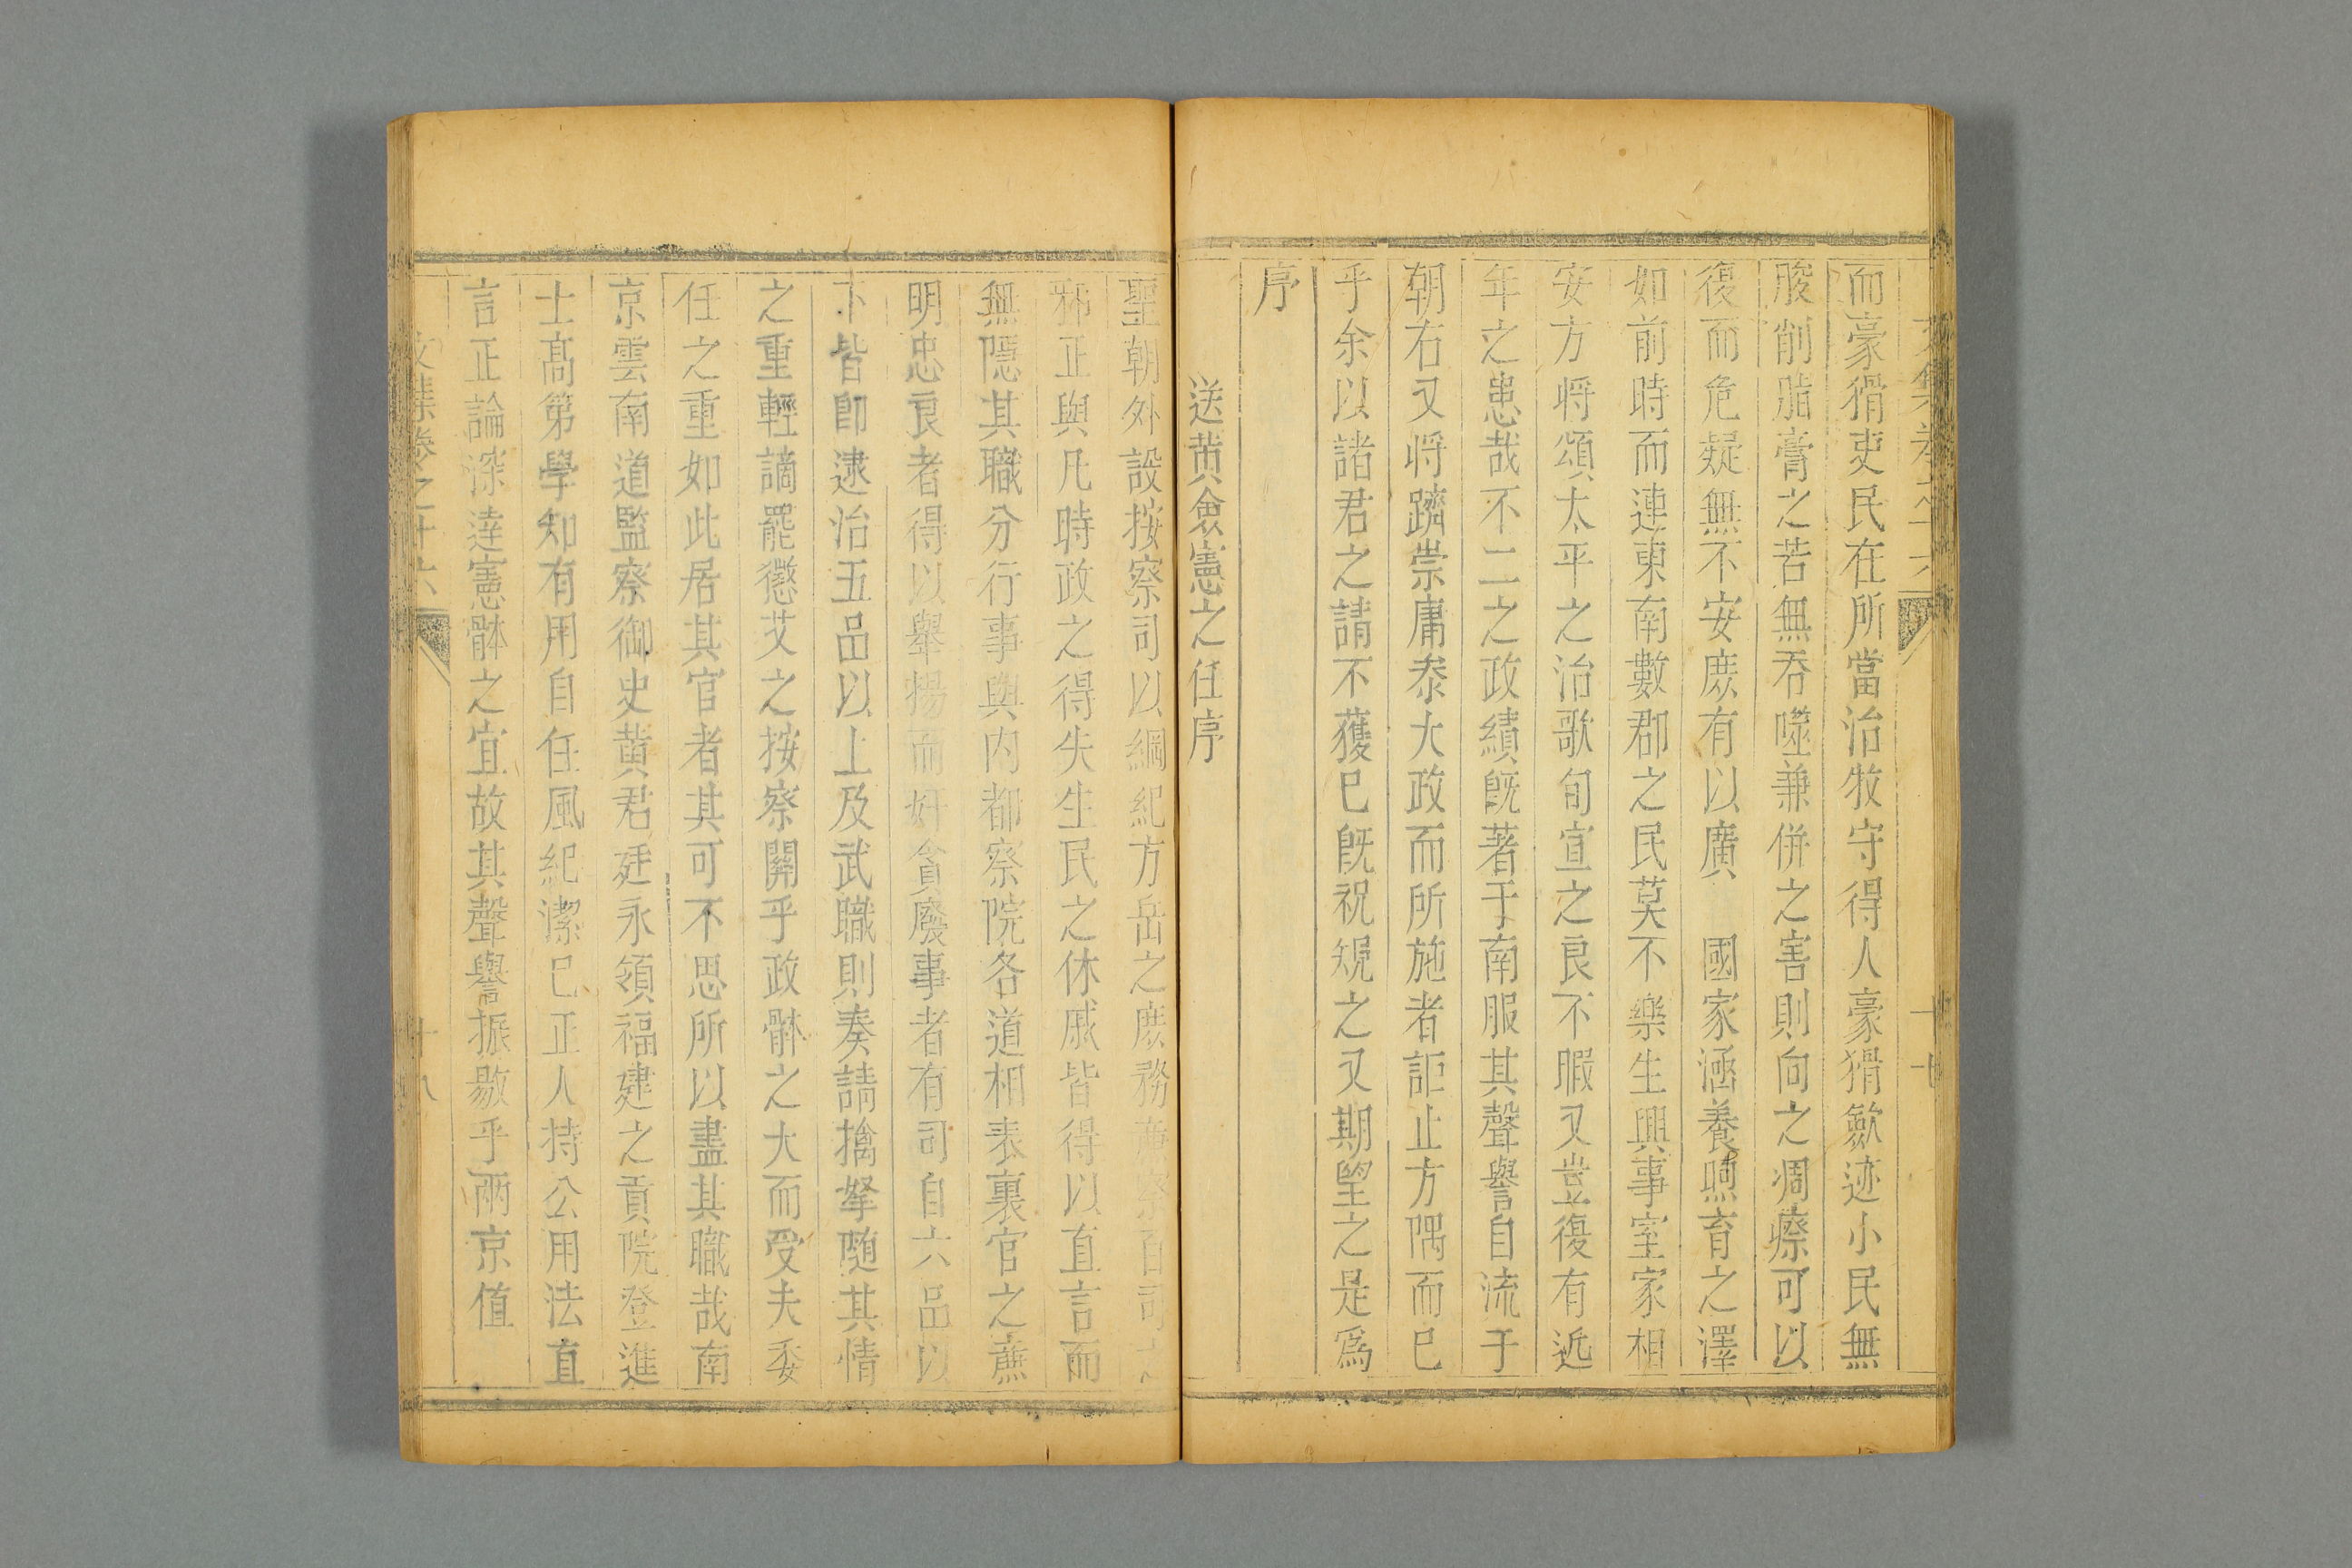 文集卷之十六
十七
而豪猾吏民在所當治牧守得人豪猾歛迹小民無
朘削脂膏之苦無吞噬兼併之害則向之凋瘵可以
復而危疑無不安庶有以廣 國家涵養煦育之澤
如前時而連東南數郡之民莫不樂生興事室家相
安方将頌太平之治歌旬宣之良不暇又豈復有近
年之患哉不二之政績旣著于南服其聲譽自流于
朝右又将躋崇庸叅大政而所施者詎止方隅而已
乎余以諸君之請不獲已旣祝規之又期望之是爲
序
送黄僉憲之任序
聖朝外設按察司以綱紀方岳之庶務廉察百司之
邪正與凡時政之得失生民之休戚皆得以直言而
無隱其職分行事與内都察院各道相表裏官之蕪
明忠良者得以舉揚而奸貪廢事者有司自六品以
下皆卽逮治五品以上及武職則奏請擒拏随其情
之重輕謫罷懲艾之按察關乎政體之大而受夫委
任之重如此居其官者其可不思所以盡其職哉南
京雲南道監察御史黄君廷永領福建之貢院登進
士髙第學知有用自任風紀潔已正人持公用法直
言正論深逹憲體之宜故其聲譽振敭乎兩京值
文集卷之十六
十八